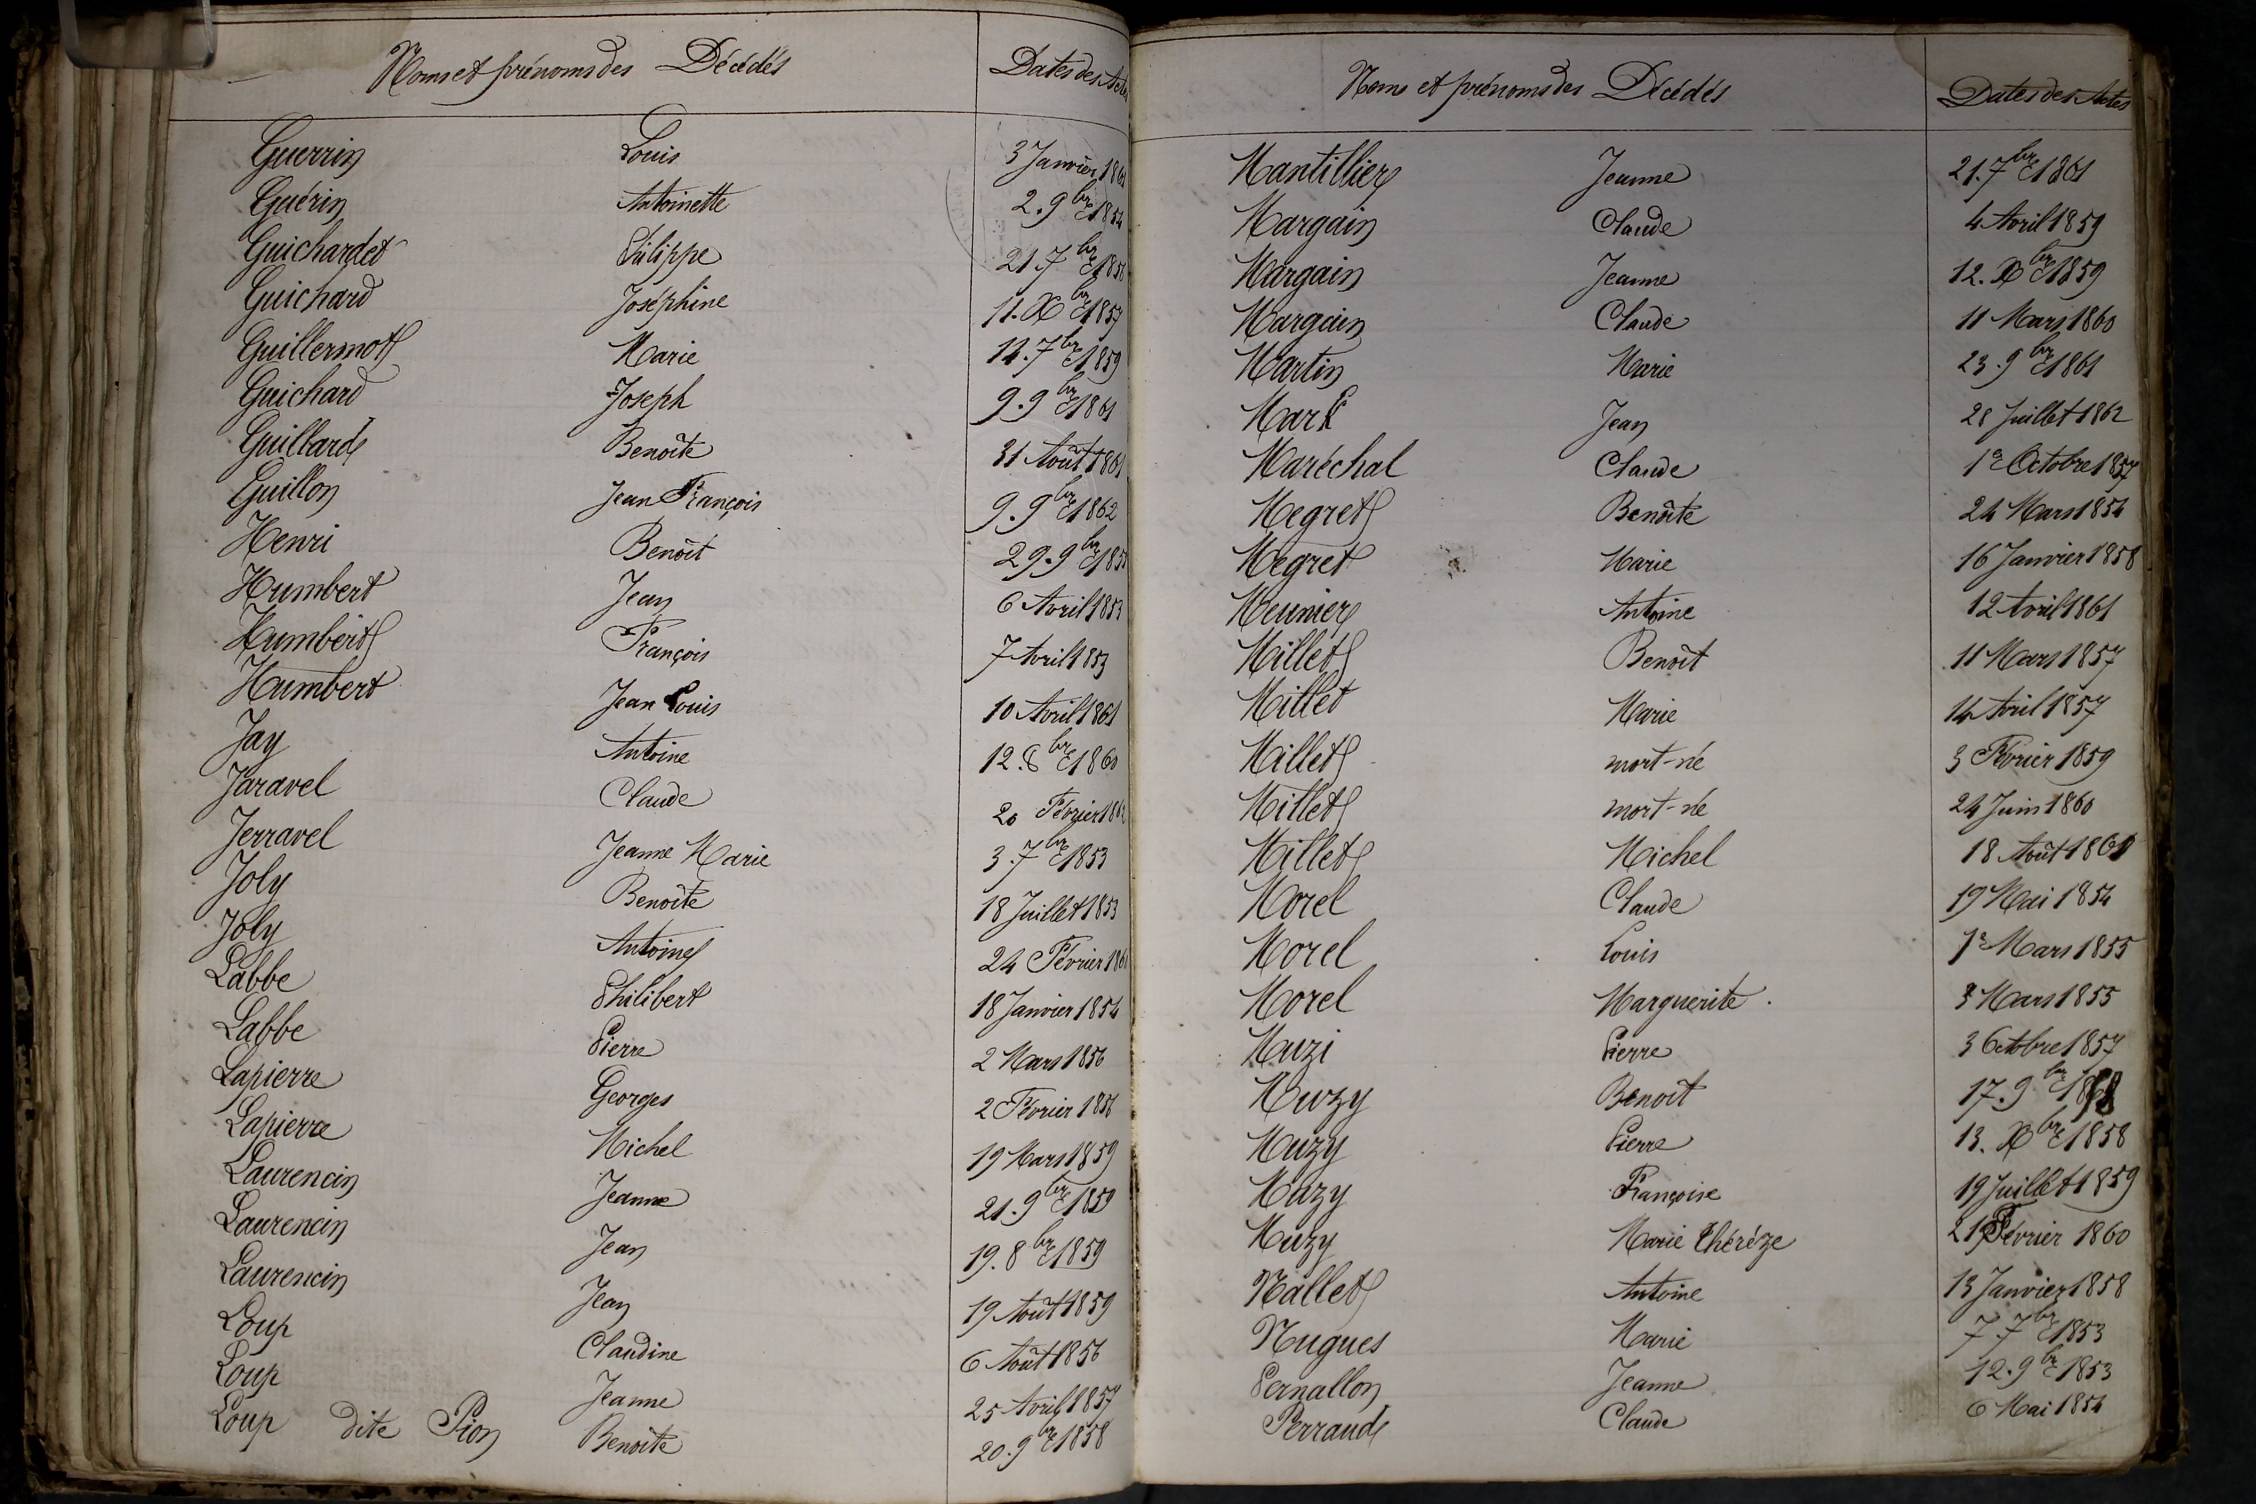 Noms et prénoms des Décédés Dates des Actes
Guerrin Louis 3 Janvier 1861
Guérin Antoinette 2. 9bre 1854
Guichardet Philippe 21. 7bre 185
Guichard Joséphine 11. Xbre 1857
Guillermot Marie 14. 7bre 1859
Guichard Joseph 9. 9bre 1861
Guillard Benoîte 31 Août 1861
Guillon Jean François 9. 9bre 1862
Henri Benoît 29. 9bre 185
Humbert Jean 6 Avril 1853
Humbert François 7 Avril 1853
Humbert Jean Louis 10 Avril 1861
Jay Antoine 12. 8bre 1860
Jaravel Claude 20 Février 186
Jerravel Jeanne Marie 3. 7bre 1853
Joly Benoîte 18 Juillet 1853
Joly Antoine 24 Février 186
Labbe Philibert 18 Janvier 1854
Labbe Pierre 2 Mars 1856
Lapierre Georges 2 Février 1856
Lapierre Michel 19 Mars 1859
Laurencin Jeanne 21. 9bre 1859
Laurencin Jean 19. 8bre 1859
Laurencin Jean 19 Août 1859
Loup Claudine 6 Août 1856
Loup Jeanne 25 Avril 1857
Loup dite Pion Benoîte 20. 9bre 1858
Noms et prénoms des Décédés Dates des Actes
Mantillier Jeanne 21. 7bre 1861
Margain Claude 4 Avril 1859
Margain Jeanne 12. Xbre 1859
Margain Claude 11 Mars 1860
Martin Marie 23. 9bre 1861
Mark Jean 28 Juillet 1862
Maréchal Claude 1er Octobre 1857
Megret Benoîte 24 Mars 1854
Megret Marie 16 Janvier 1858
Meunier Antoine 12 Avril 1861
Millet Benoît 11 Mars 1857
Millet Marie 14 Avril 1857
Millet mort-né 3 Février 1859
Millet mort-né 24 Juin 1860
Millet Michel 18 Août 1861
Morel Claude 19 Mai 1854
Morel Louis 1er Mars 1855
Morel Marguerite 3 Mars 1855
Muzi Pierre 3 Octobre 1857
Muzy Benoit 17. 9bre
Muzy Pierre 13. Xbre 1858
Muzy Françoise 19 Juillet 1859
Muzy Marie Théréze 21 Février 1860
Nallet Antoine 13 Janvier 1858
Nugues Marie 7. 7bre 1853
Pernallon Jeanne 12. 9bre 1853
Perraud Claude 6 Mai 1854